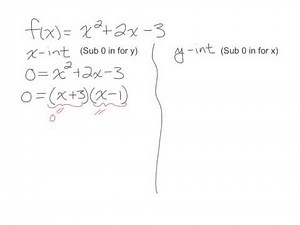 f(x) = x² + 2x - 3
x-int (Sub 0 in for y)
0 = x² + 2x - 3
0 = (x+3)(x-1)
0
y-int (Sub 0 in for x)